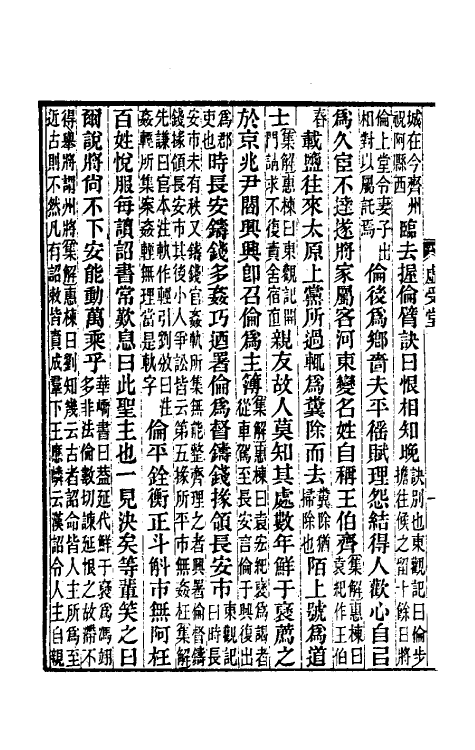 城在今齊州
祝阿縣西
臨去握倫臂訣曰恨相知晚
訣別也東觀記曰倫步
擔往候之留十餘日將
倫上堂令妻子出
相對以屬託焉
倫後爲鄉嗇夫平徭賦理怨結得人歡心自㠯
爲久宦不達遂將家屬客河東變名姓自稱王伯齊
集解惠棟曰
袁紀作王伯
春
載鹽往來太原上黨所過輒爲糞除而去
糞除猶
掃除也
陌上號爲道
士
集解惠棟曰東觀記開
門請求不復責舍宿直
親友故人莫知其處數年鮮于襃薦之
於京兆尹閻興興卽召倫爲主簿
集解惠棟曰袁宏紀襃爲謁者
從車駕至長安言倫于興復出
爲郡
吏也
時長安鑄錢多姦巧迺署倫爲督鑄錢掾領長安市
東觀記
曰時長
安市未有秩又鑄錢官姦軌所集無能整齊理之者興署倫督鑄
錢掾領長安市其後小人爭訟皆云第五掾所平市無姦枉集解
先謙曰官本注軌作輕引劉攽曰注
姦輕所集案姦輕無理當是軌字
倫平銓衡正斗斛市無阿枉
百姓悅服每讀詔書常歎息曰此聖主也一見決矣等輩笑之曰
爾說將尚不下安能動萬乘乎
華嶠書曰蓋延代鮮于襃爲馮翊
多非法倫數切諫延恨之故滯不
得舉將謂州將集解惠棟曰劉知幾云古者詔命皆人主所爲至
近古則不然凡有詔敕皆責成羣下王應麟云漢詔令人主自親
虛受堂